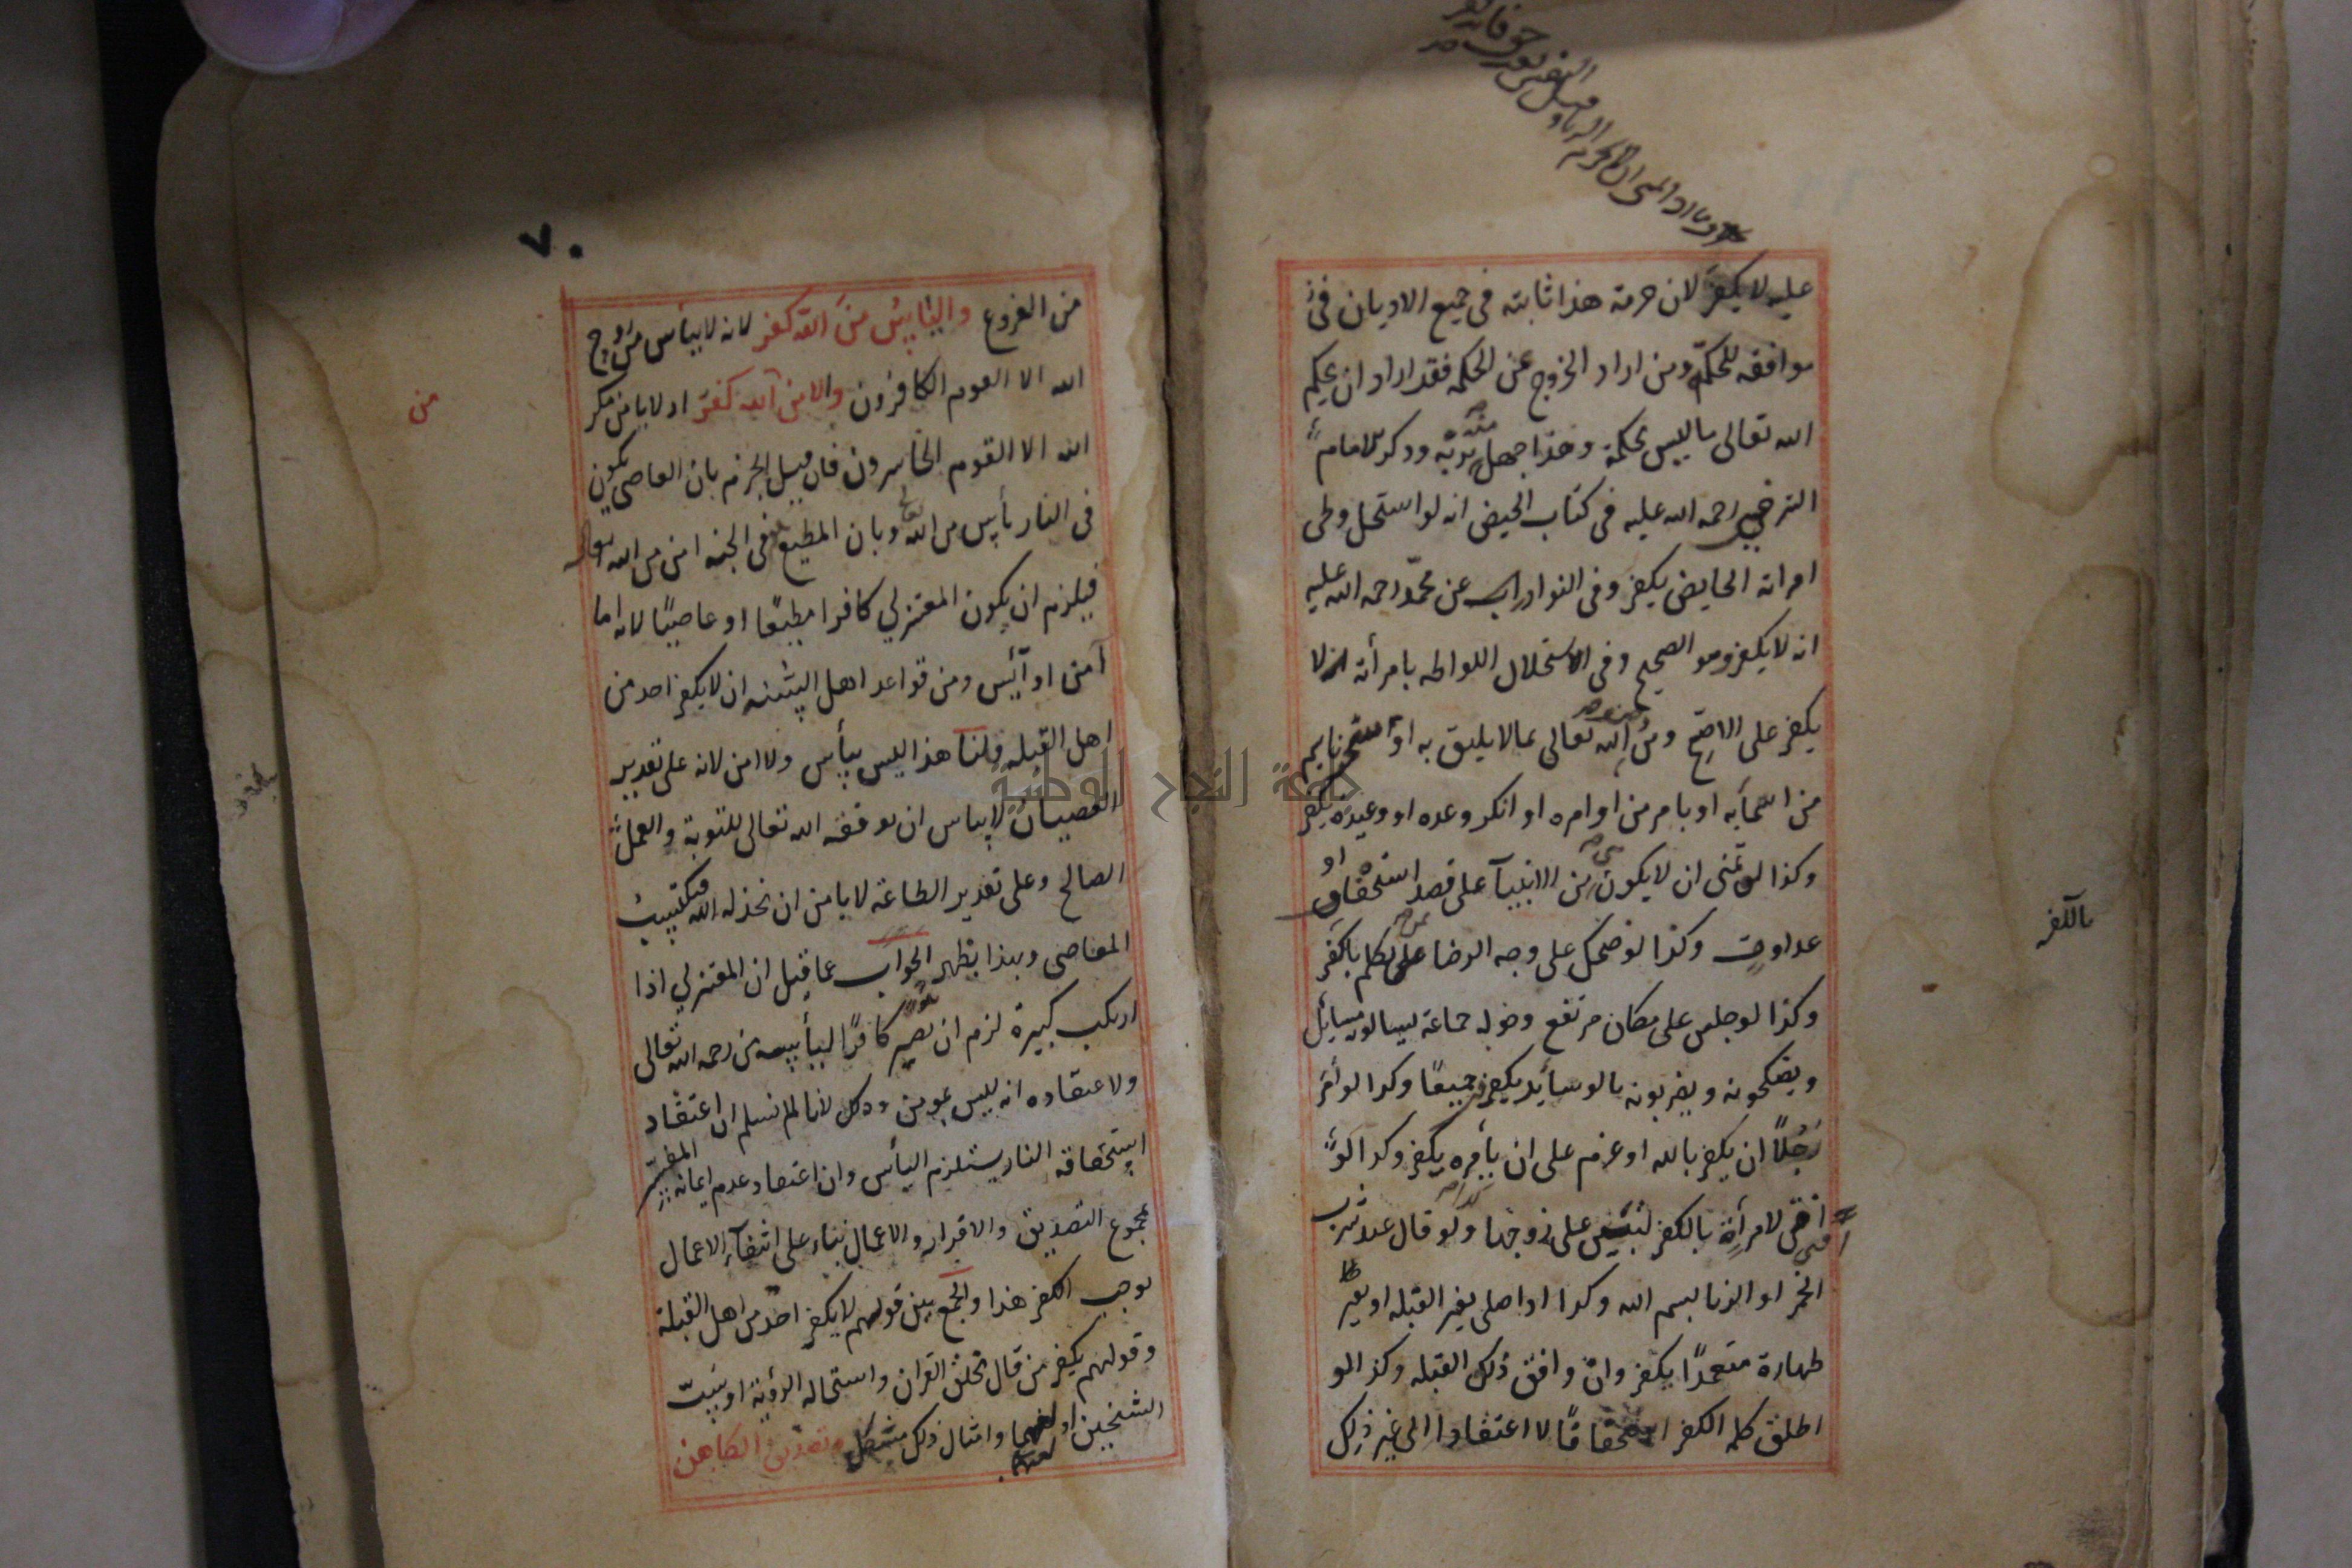 عليه لا يكفر لان حرمة هذا ثابته فى جميع الاديان فى
موافقه للحكمة ومن اراد الخروج عن الحكمه فقد اراد ان يحكم
الله تعالى ما ليس بحكمة وهذا جهل منه بربه وذكر الامام
السرخسى رحمه الله عليه فى كتاب الحيض انه لو استحل وطى
امراته الحايض يكفر وفى النوادر عن محمد رحمه الله عليه
انه لا يكفر وهو الصحيح وفى استحلال اللواطه بامرأته لا
يكفر على الاصح ومن وصف الله تعالى بما لا يليق به او سخر باسم
من اسمآيه او بامر من اوامره او انكر وعده او وعيده يكفر
وكذا لو تمنى ان لا يكون نبى من الانبيآ على قصد استخفاف او
عداوة وكذا لو ضحك على وجه الرضا على من تكلم بالكفر
وكذا لو جلس على مكان مرتفع وحوله جماعة يسالونه مسايل
ويضحكونه ويضربونه بالوسايد يكفرون جميعا وكذا لو أمر
رَجُلاً ان يكفر بالله او عزم على ان يأمره يكفر وكذا لو
افتى لامرأة بالكفر لتبين على زوجها وكذا لو قال عند شرب
الخمر او الزنا بسم الله وكذا اذا صلى بغير القبله او بغير
طهارة متعمدًا يكفر وان وافق ذلك القبله وكذا لو
اطلق كلمه الكفر استخفافًا لا اعتقادا الى غير ذلك
بالكفر
٧٠
من الفروع واليآيس من الله كفر لانه لا ييأس من روح
الله الا القوم الكافرون والامن من الله كفر اذ لا يامن مكر
من
الله الا القوم الخاسرون فان قيل الجزم بان العاصى يكون
فى النار يأس من الله تعالى وبان المطيع فى الجنه امن من الله تعالى
فيلزم ان يكون المعتزلي كافرا مطيعًا او عاصيًا لانه اما
آمن او آيس ومن قواعد اهل السنه ان لا يكفر احد من
اهل القبله قلنا هذا ليس بيأس ولا امن لانه على تقدير
العصيان لا يياس ان يوفقه الله تعالى للتوبة والعمل
الصالح وعلى تقدير الطاعة لا يامن ان يخذله الله فيكتسب
المعاصى وبهذا يظهر الجواب عما قيل ان المعتزلي اذا
ارتكب كبيرة لزم ان يصير كافرًا ليأسه من رحمه الله تعالى
ولاعتقاده انه ليس بمومن وذلك لانا لا نسلم ان اعتقاد
استحقاقه النار يستلزم اليأس وان اعتقاد عدم ايمانه المفسر
بمجموع التصديق والاقرار والاعمال بناء على انتفآء الاعمال
يوجب الكفر هذا والجمع بين قولهم لا يكفر احد من اهل القبلة
وقولهم يكفر من قال بخلق القران واستحاله الرؤية او سب
الشيخين او لعنهما وامثال ذلك مشكل وتصديق الكاهن
جامعة النجاح الوطنية